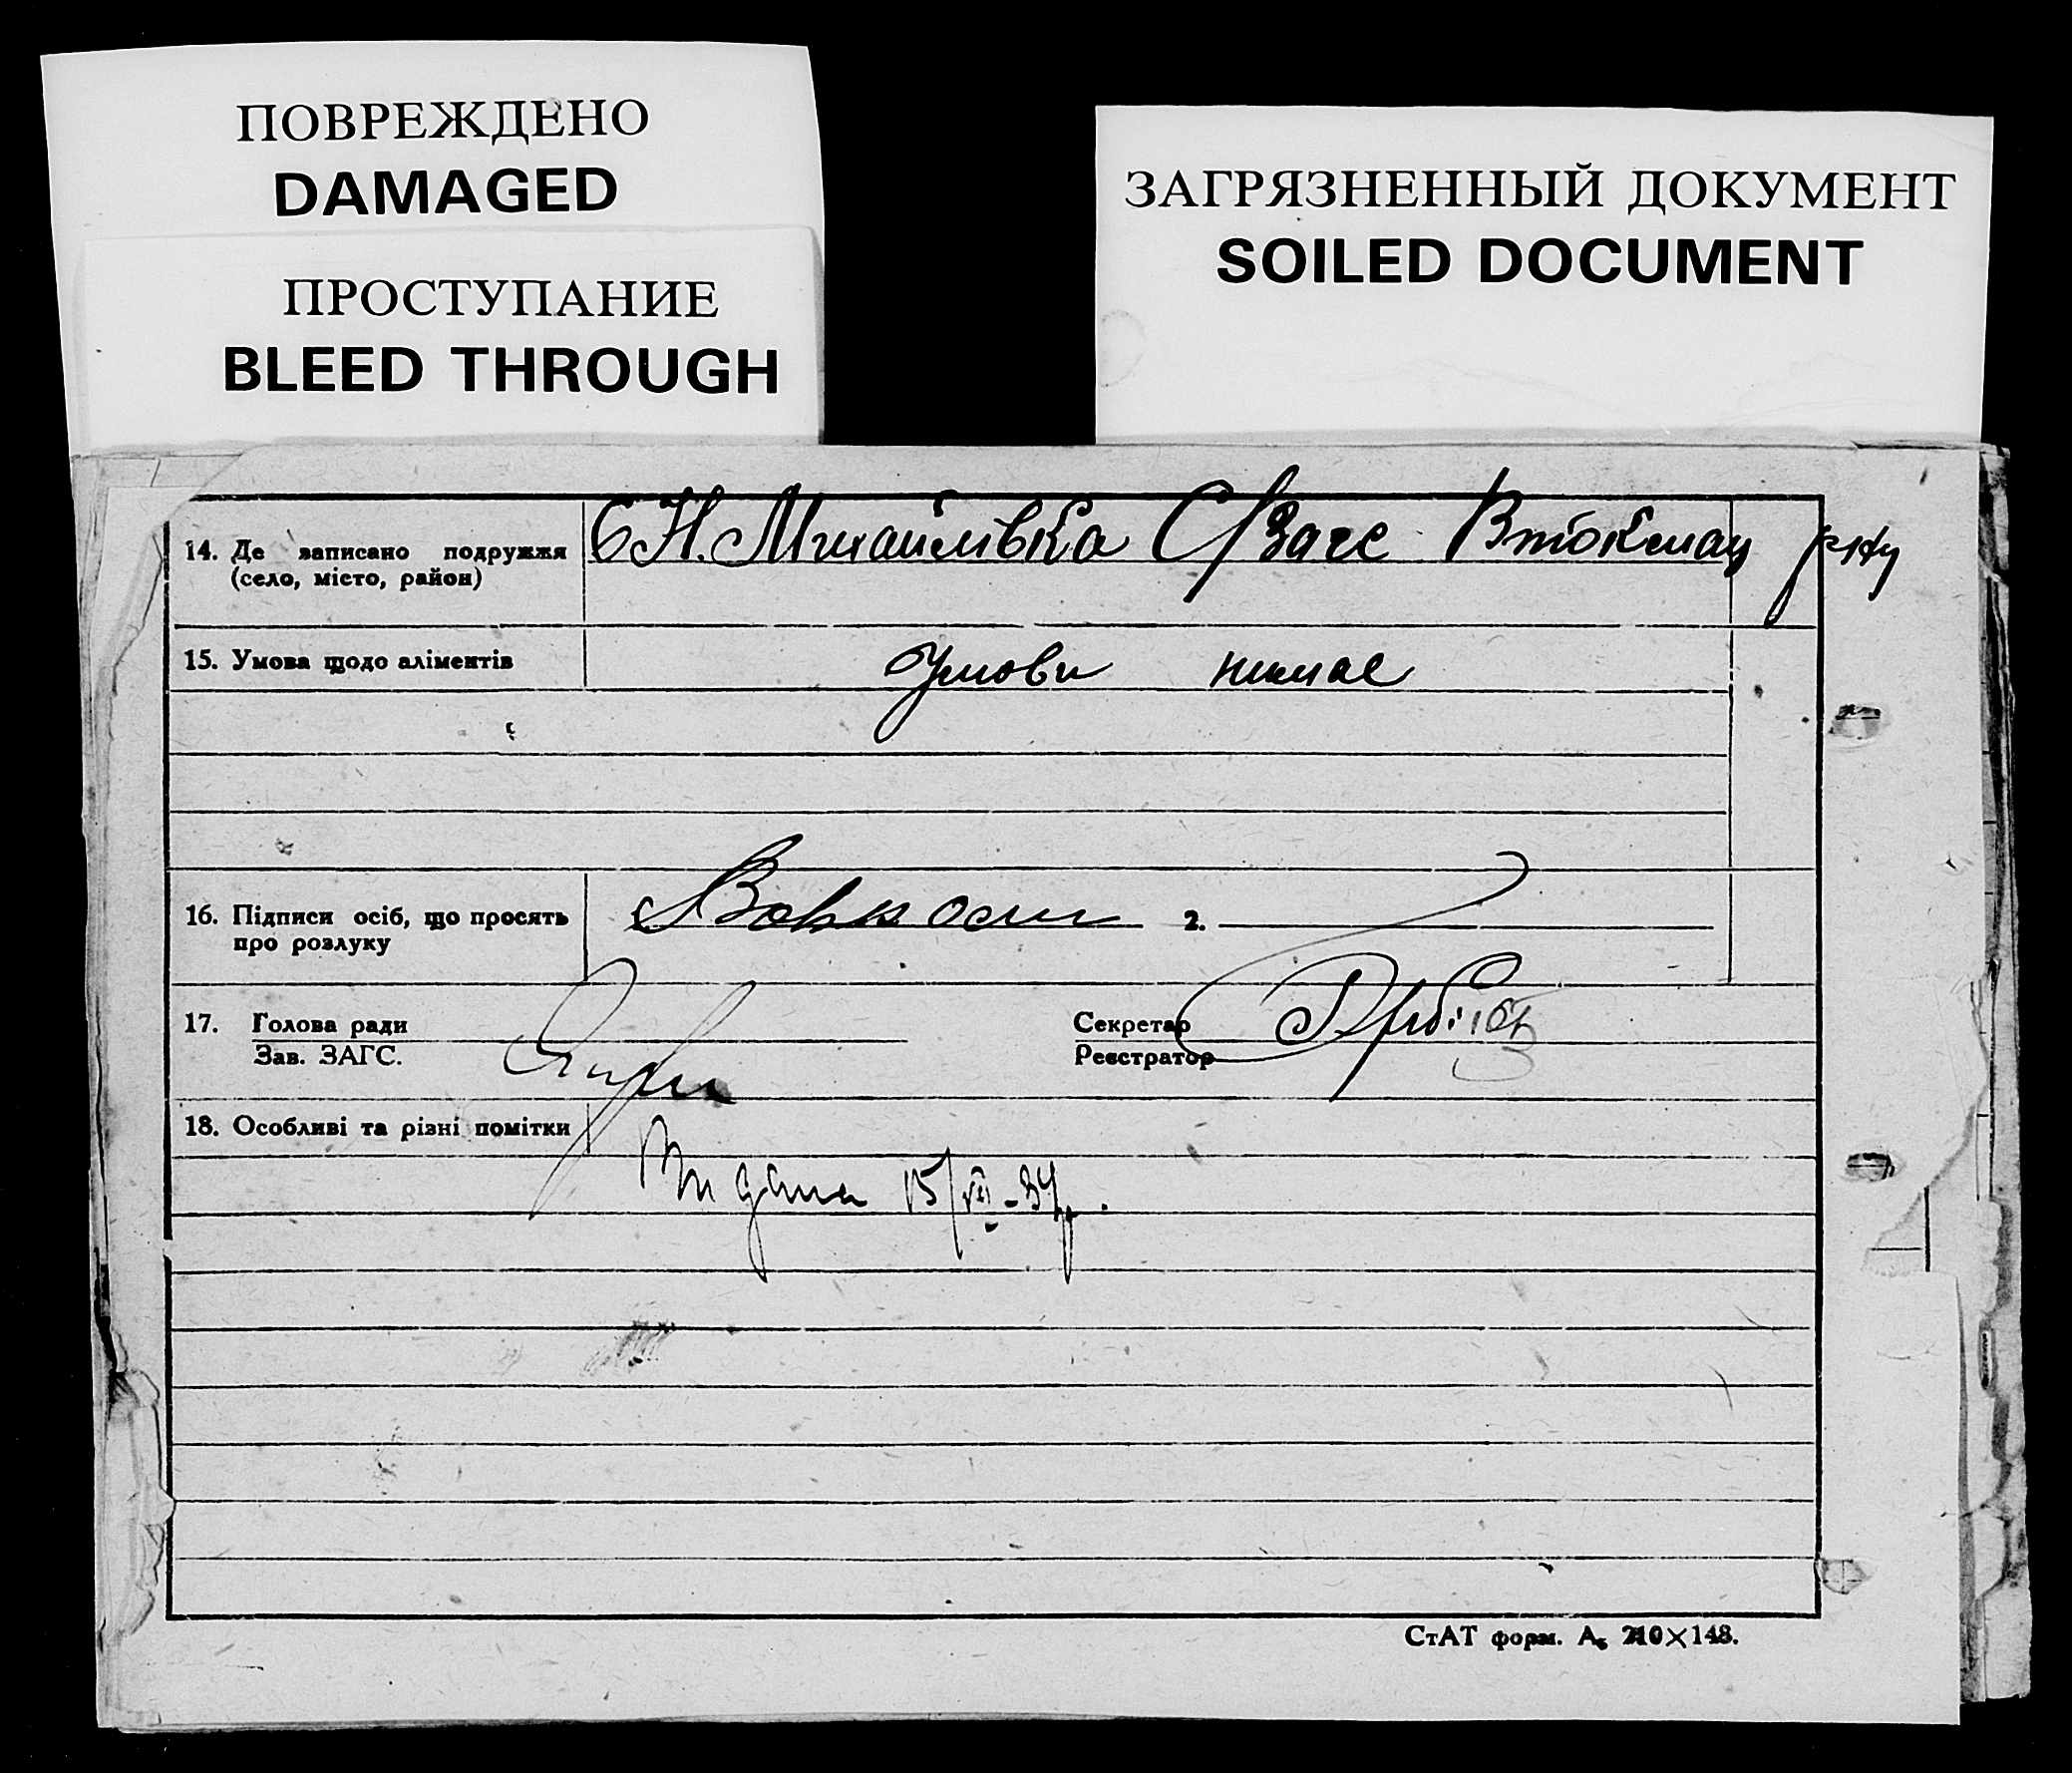 ПОВРЕЖДЕНО
DAMAGED
ПРОСТУПАНИЕ
BLEED THROUGH
ЗАГРЯЗНЕННЫЙ ДОКУМЕНТ
SOILED DOCUMENT
14. Де записано подружжя С Н. Михайлівка С/Загс Втокмац р-ну
(село, місто, район)
15. Умова щодо аліментів Умови немае
16. Підписи осіб, що просять 2.
про розлуку
17. Голова ради Секретар
Зав. ЗАГС. Реєстратор
18. Особливі та різні помітки
Видана 15/VII-34р.
СтАТ форм. А5 210×148.